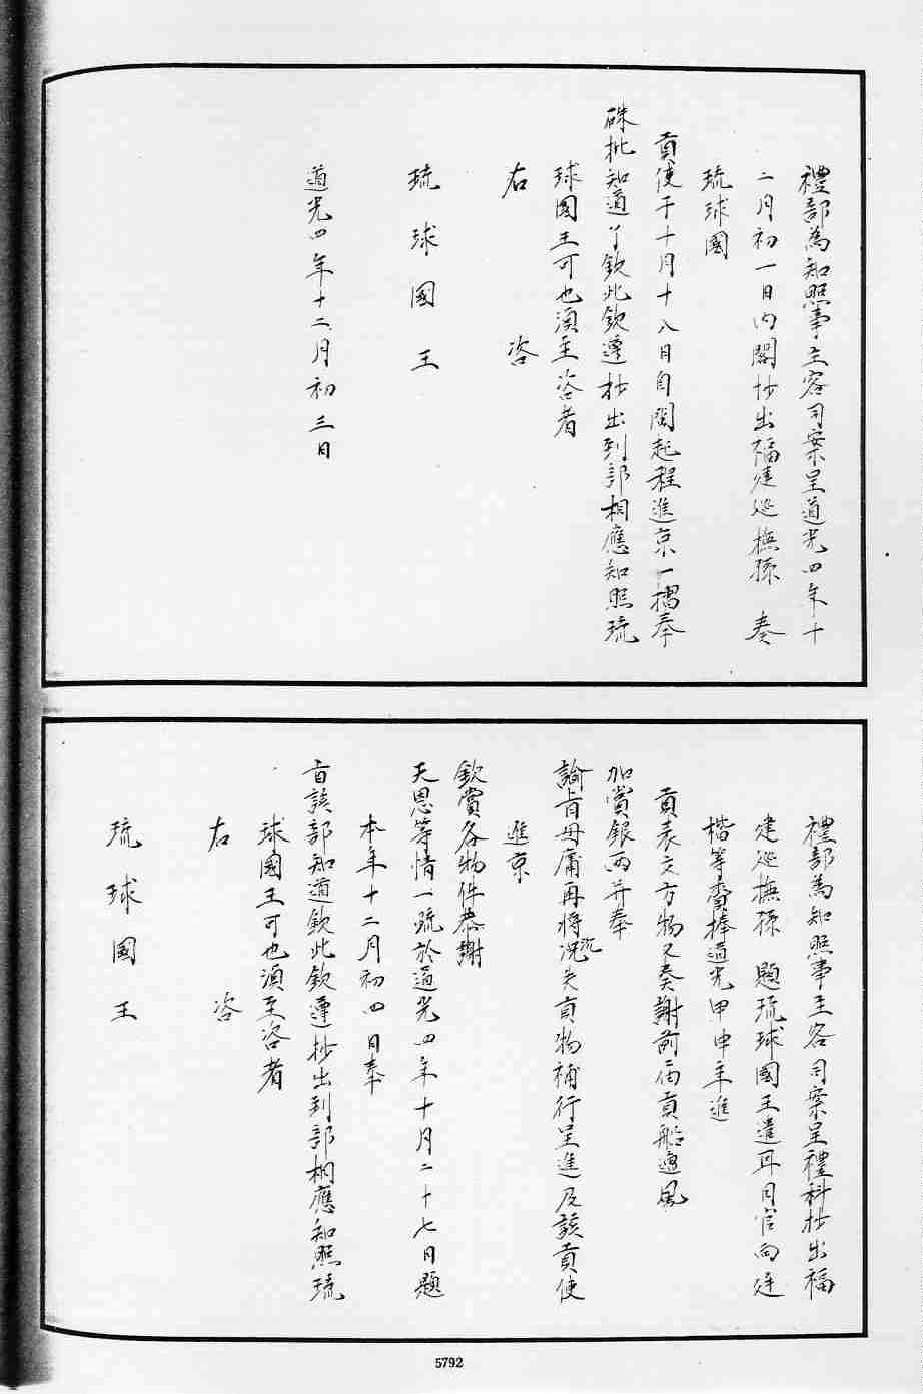 禮部為知照事主客司案呈道光四年十
二月初一日內閣抄出福建巡撫孫　奏
琉球國
貢使于十月十八日自閩起程進京一摺奉
硃批知道了欽此欽遵抄出到部相應知照琉
球國王可也須至咨者
右　咨
琉　球　國　王
道光四年十二月初三日
禮部為知照事主客司案呈禮科抄出福
建巡撫孫　題琉球國王遣耳目官向廷
楷等賷捧道光甲申年進
貢表文方物又奏謝前届貢船遭風
加賞銀兩并奉
諭旨毋庸再將沉失貢物補行呈進及該貢使
進京
欽賞各物件恭謝
天恩等情一疏於道光四年十月二十七日題
本年十二月初四日奉
旨該部知道欽此欽遵抄出到部相應知照琉
球國王可也須至咨者
右　咨
琉　球　國　王
5792